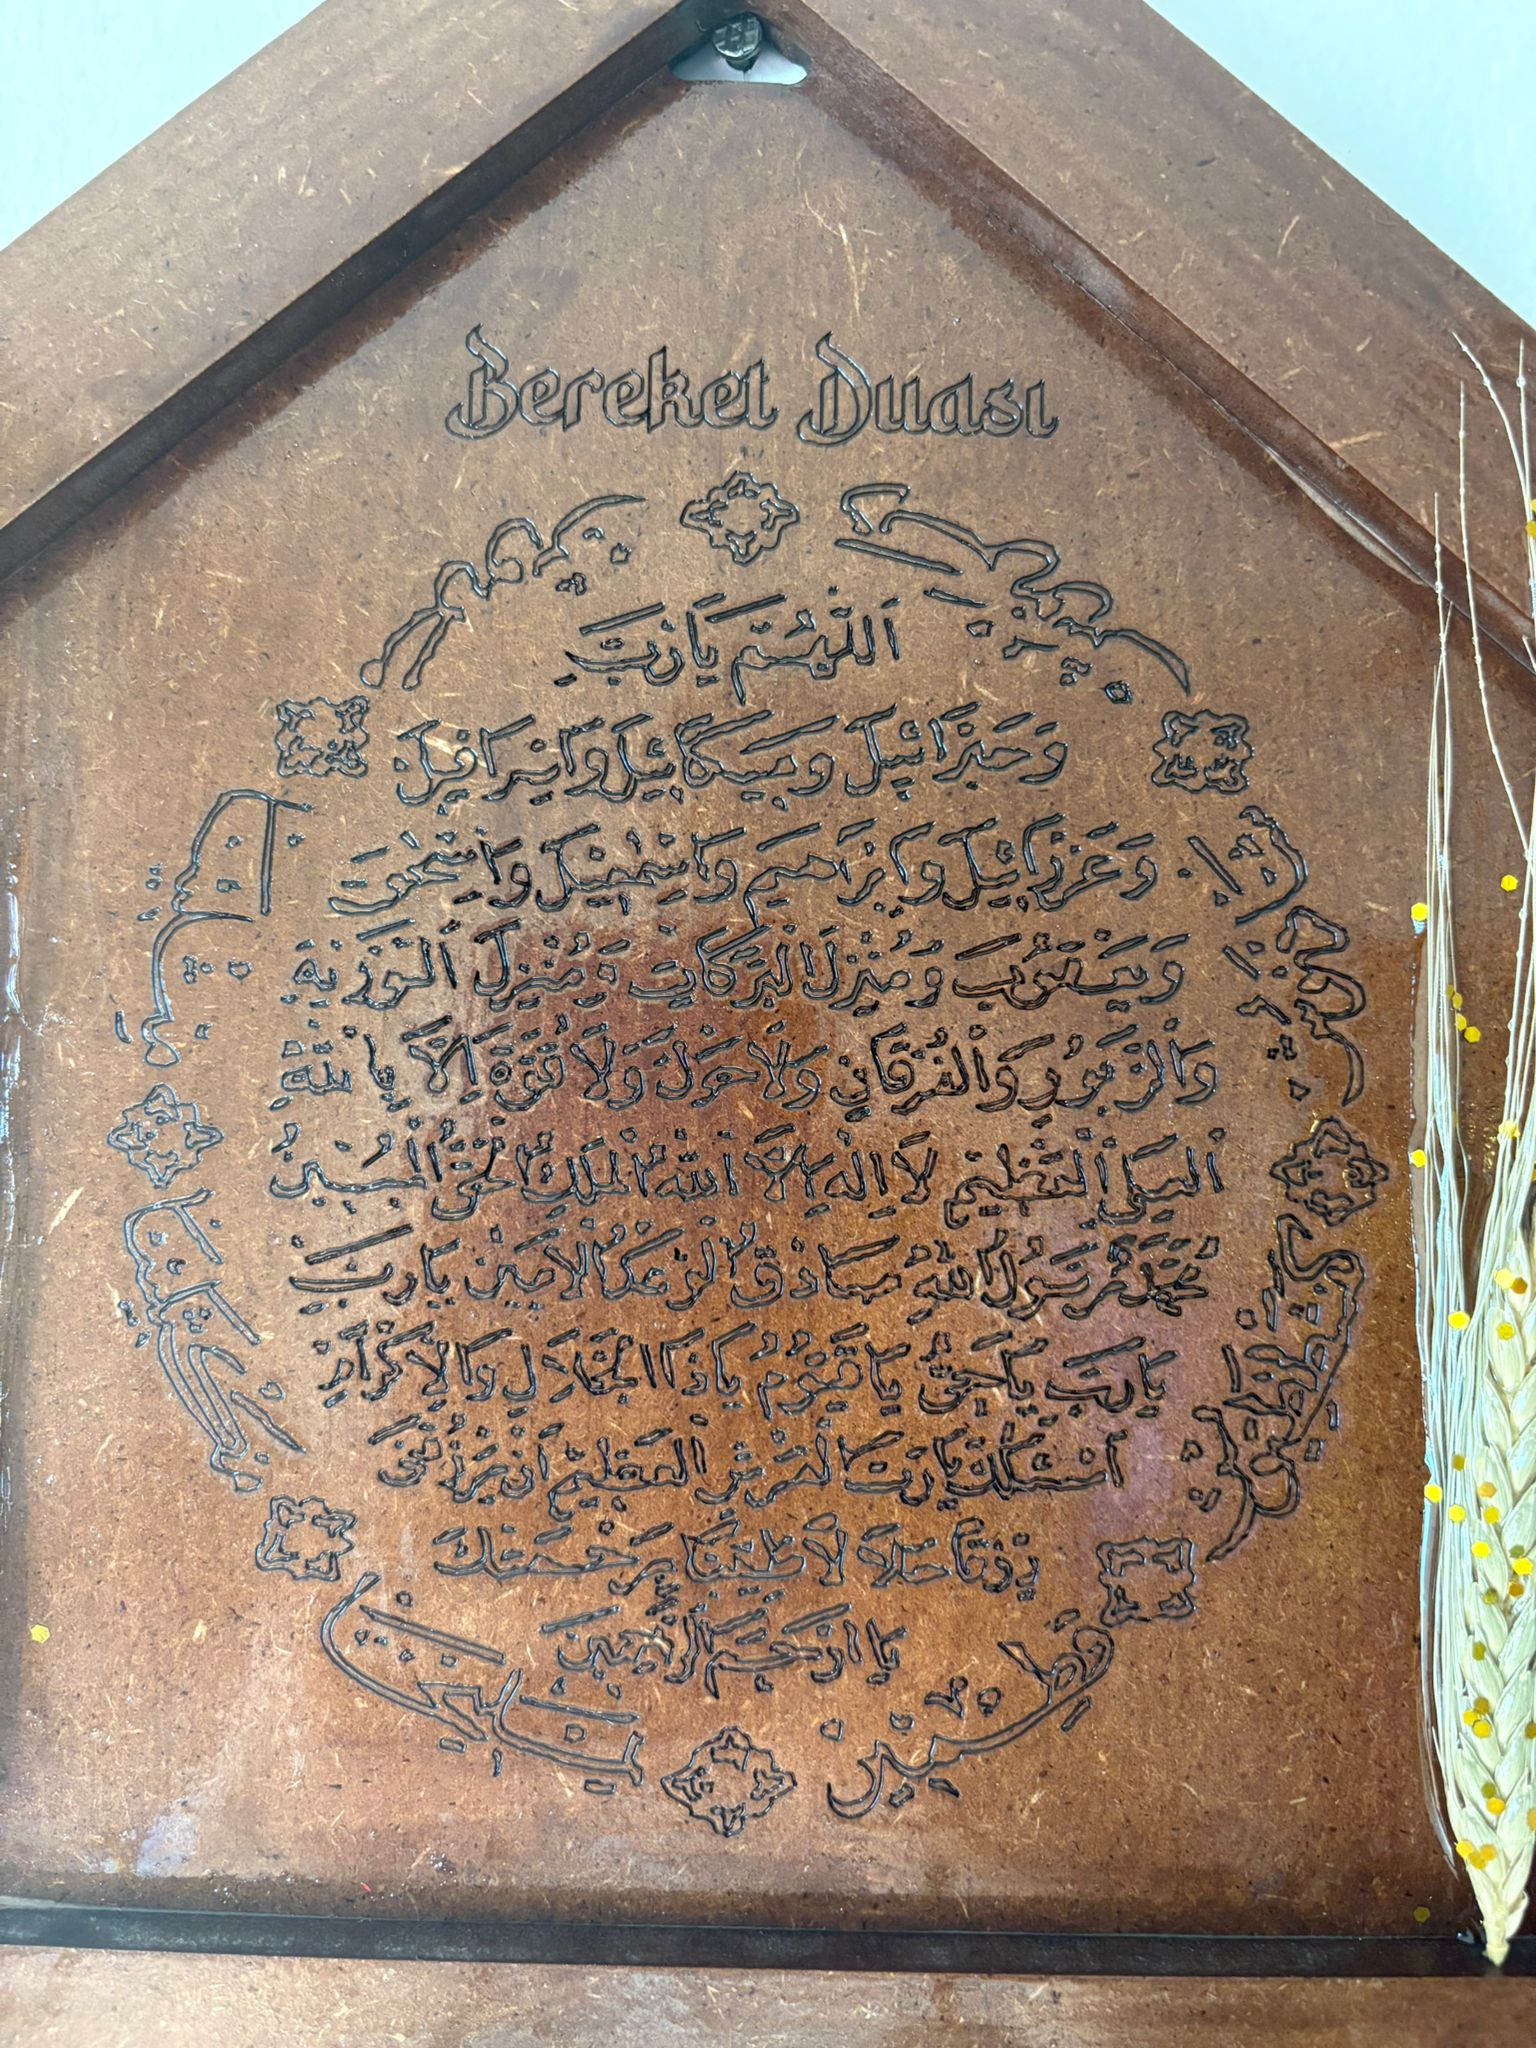 Bereket Duası
اَللّٰهُمَّ يَا رَبَّ
وَجَبْرَائِيلَ وَمِيكَائِيلَ وَاِسْرَافِيلَ
وَعَزْرَائِيلَ وَاِبْرَاهِيمَ وَاِسْمٰعِيلَ وَاِسْحٰقَ
وَيَعْقُوبَ وَمُنْزِلَ الْبَرَكَاتِ وَمُنْزِلَ التَّوْرٰيةِ
وَالزَّبُورِ وَالْفُرْقَانِ وَلَا حَوْلَ وَلَا قُوَّةَ اِلَّا بِاللّٰهِ
الْعَلِيِّ الْعَظِيمِ لَا اِلٰهَ اِلَّا اللّٰهُ الْمَلِكُ الْحَقُّ الْمُبِينُ
مُحَمَّدٌ رَسُولُ اللّٰهِ صَادِقُ الْوَعْدِ الْاَمِينُ يَا رَبِّ
يَا رَبِّ يَا حَيُّ يَا قَيُّومُ يَا ذَا الْجَلَالِ وَالْاِكْرَامِ
اَسْئَلُكَ يَا رَبَّ الْعَرْشِ الْعَظِيمِ اَنْ يَرْزُقَنِي
رِزْقًا حَلَالًا طَيِّبًا بِرَحْمَتِكَ
يَا اَرْحَمَ الرَّاحِمِينَ